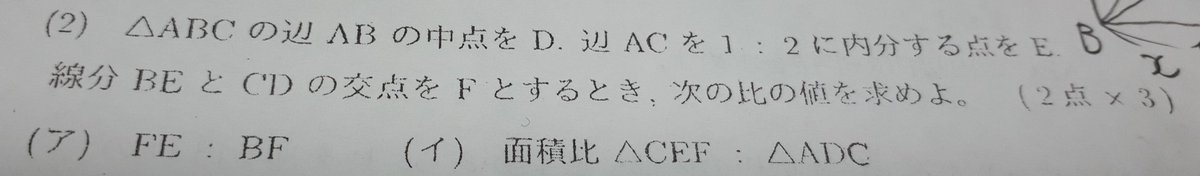 (2) △ABC の辺 AB の中点を D. 辺 AC を 1 : 2 に内分する点を E.
線分 BE と CD の交点を F とするとき, 次の比の値を求めよ。 (2点 × 3)
(ア) FE : BF (イ) 面積比 △CEF : △ADC
B
x